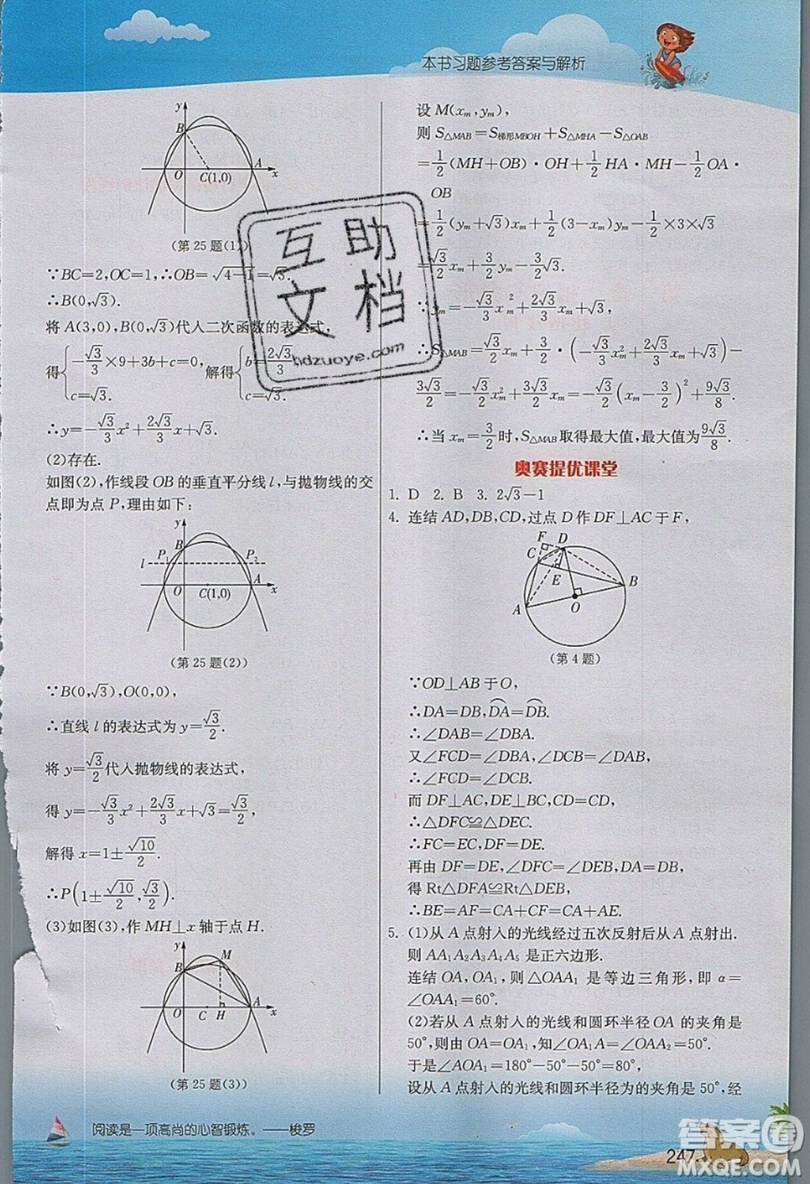 本书习题参考答案与解析
y
B
O
C(1,0)
A
x
(第25题(1))
∵BC=2,OC=1,∴OB=√4-1=√3.
∴B(0,√3).
将A(3,0),B(0,√3)代入二次函数的表达式,
得{-√3/3×9+3b+c=0, c=√3. 解得{b=2√3/3, c=√3.
∴y=-√3/3x²+2√3/3x+√3.
(2)存在.
如图(2),作线段OB的垂直平分线l,与抛物线的交
点即为点P,理由如下:
y
B
P₁
P₂
l
O
C(1,0)
A
x
(第25题(2))
∵B(0,√3),O(0,0),
∴直线l的表达式为y=√3/2.
将y=√3/2代入抛物线的表达式,
得y=-√3/3x²+2√3/3x+√3=√3/2,
解得x=1±√10/2.
∴P(1±√10/2,√3/2).
(3)如图(3),作MH⊥x轴于点H.
y
M
B
O
C
H
A
x
(第25题(3))
设M(xₘ,yₘ),
则S△MAB=S梯形MBOH+S△MHA-S△OAB
=1/2(MH+OB)·OH+1/2HA·MH-1/2OA·
OB
=1/2(yₘ+√3)xₘ+1/2(3-xₘ)yₘ-1/2×3×√3
=√3/2xₘ+3/2yₘ-3√3/2.
∵yₘ=-√3/3xₘ²+2√3/3xₘ+√3,
∴S△MAB=√3/2xₘ+3/2·(-√3/3xₘ²+2√3/3xₘ+√3)-
3√3/2=-√3/2xₘ²+3√3/2xₘ=-√3/2(xₘ-3/2)²+9√3/8.
∴当xₘ=3/2时,S△MAB取得最大值,最大值为9√3/8.
奥赛提优课堂
1. D 2. B 3. 2√3-1
4. 连结AD,DB,CD,过点D作DF⊥AC于F,
F
D
C
E
B
A
O
(第4题)
∵OD⊥AB于O,
∴DA=DB,DA⌒=DB⌒.
∴∠DAB=∠DBA.
又∠FCD=∠DBA,∠DAB=∠DCB,
∴∠FCD=∠DCE.
而DF⊥AC,DE⊥BC,CD=CD,
∴△DFC≌△DEC.
∴FC=EC,DF=DE.
再由DF=DE,∠DFC=∠DEB,DA=DB,
得Rt△DFA≌Rt△DEB,
∴BE=AF=CA+CF=CA+CE.
5. (1)从A点射入的光线经过五次反射后从A点射出.
则AA₁A₂A₃A₄A₅是正六边形.
连结OA,OA₁,则△OAA₁是等边三角形,即α=
∠OAA₁=60°.
(2)若从A点射入的光线和圆环半径OA的夹角是
50°,则由OA=OA₁,知∠OA₁A=∠OAA₁=50°.
于是∠AOA₁=180°-50°-50°=80°.
设从A点射入的光线和圆环半径为的夹角是50°,经
互助
文档
hdzuoye.com
阅读是一项高尚的心智锻炼。——梭罗
247
答案圈
MXQE.COM